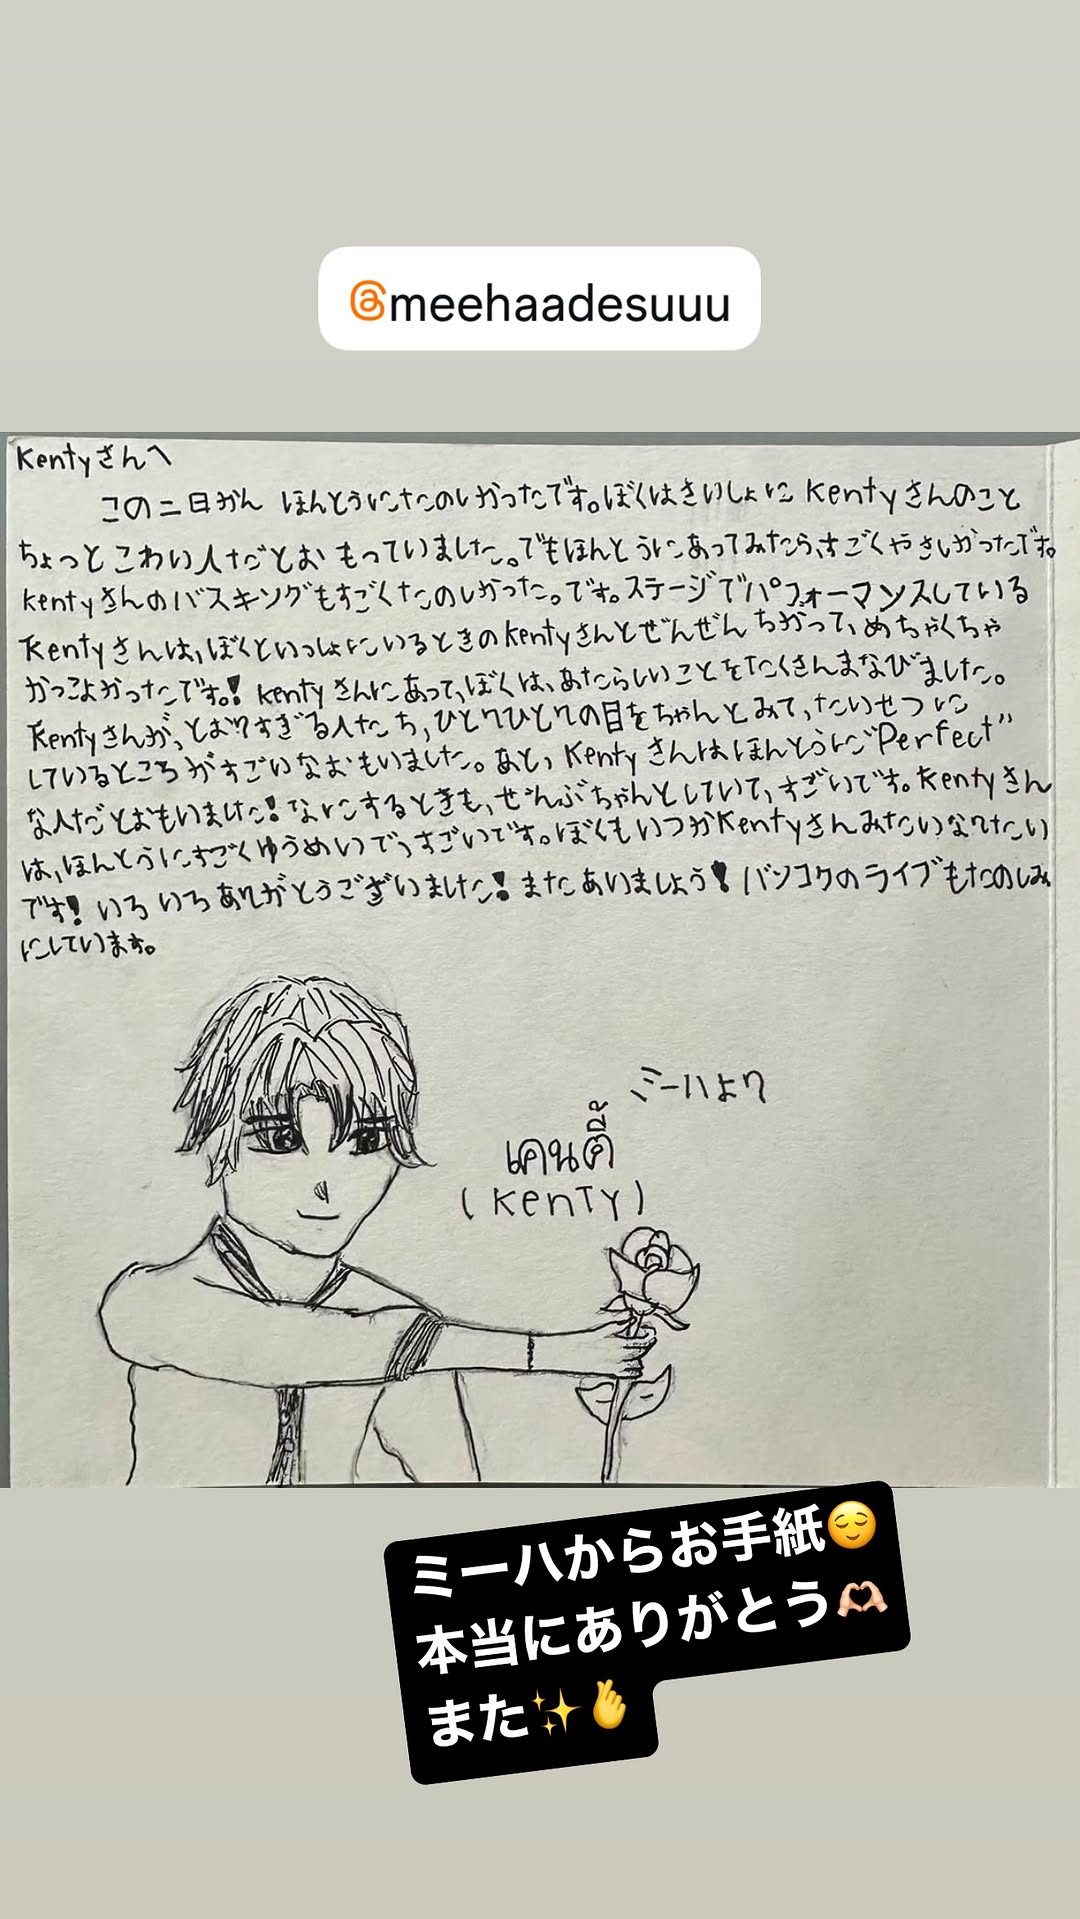 @meehaadesuuu
Kentyさんへ
この二日かん ほんとうにたのしかったです。ぼくはさいしょに Kentyさんのこと
ちょっと こわい人だとおもっていました。でもほんとうにあってみたら、すごくやさしかったです。
Kentyさんのバスキングもすごくたのしかった。です。ステージでパフォーマンスしている
Kentyさんは、ぼくといっしょにいるときのKentyさんとぜんぜん ちがって、めちゃくちゃ
かっこよかったです。! Kentyさんにあって、ぼくは、あたらしいことをたくさんまなびました。
Kentyさんが、とおりすぎる人たち、ひとりひとりの目をちゃんとみて、たいせつに
しているところがすごいなおもいました。あと、Kentyさんはほんとうに"Perfect"
な人だとおもいました! なにするときも、ぜんぶちゃんとしていて、すごいです。Kentyさん
は、ほんとうにすごくゆうめいで、すごいです。ぼくもいつかKentyさんみたいなりたい
です! いろいろありがとうございました! またあいましょう! バンコクのライブもたのしみ
にしています。
ミーハより
เคนตี้
(KenTY)
ミーハからお手紙😌
本当にありがとう🫶🏻
また✨🫰